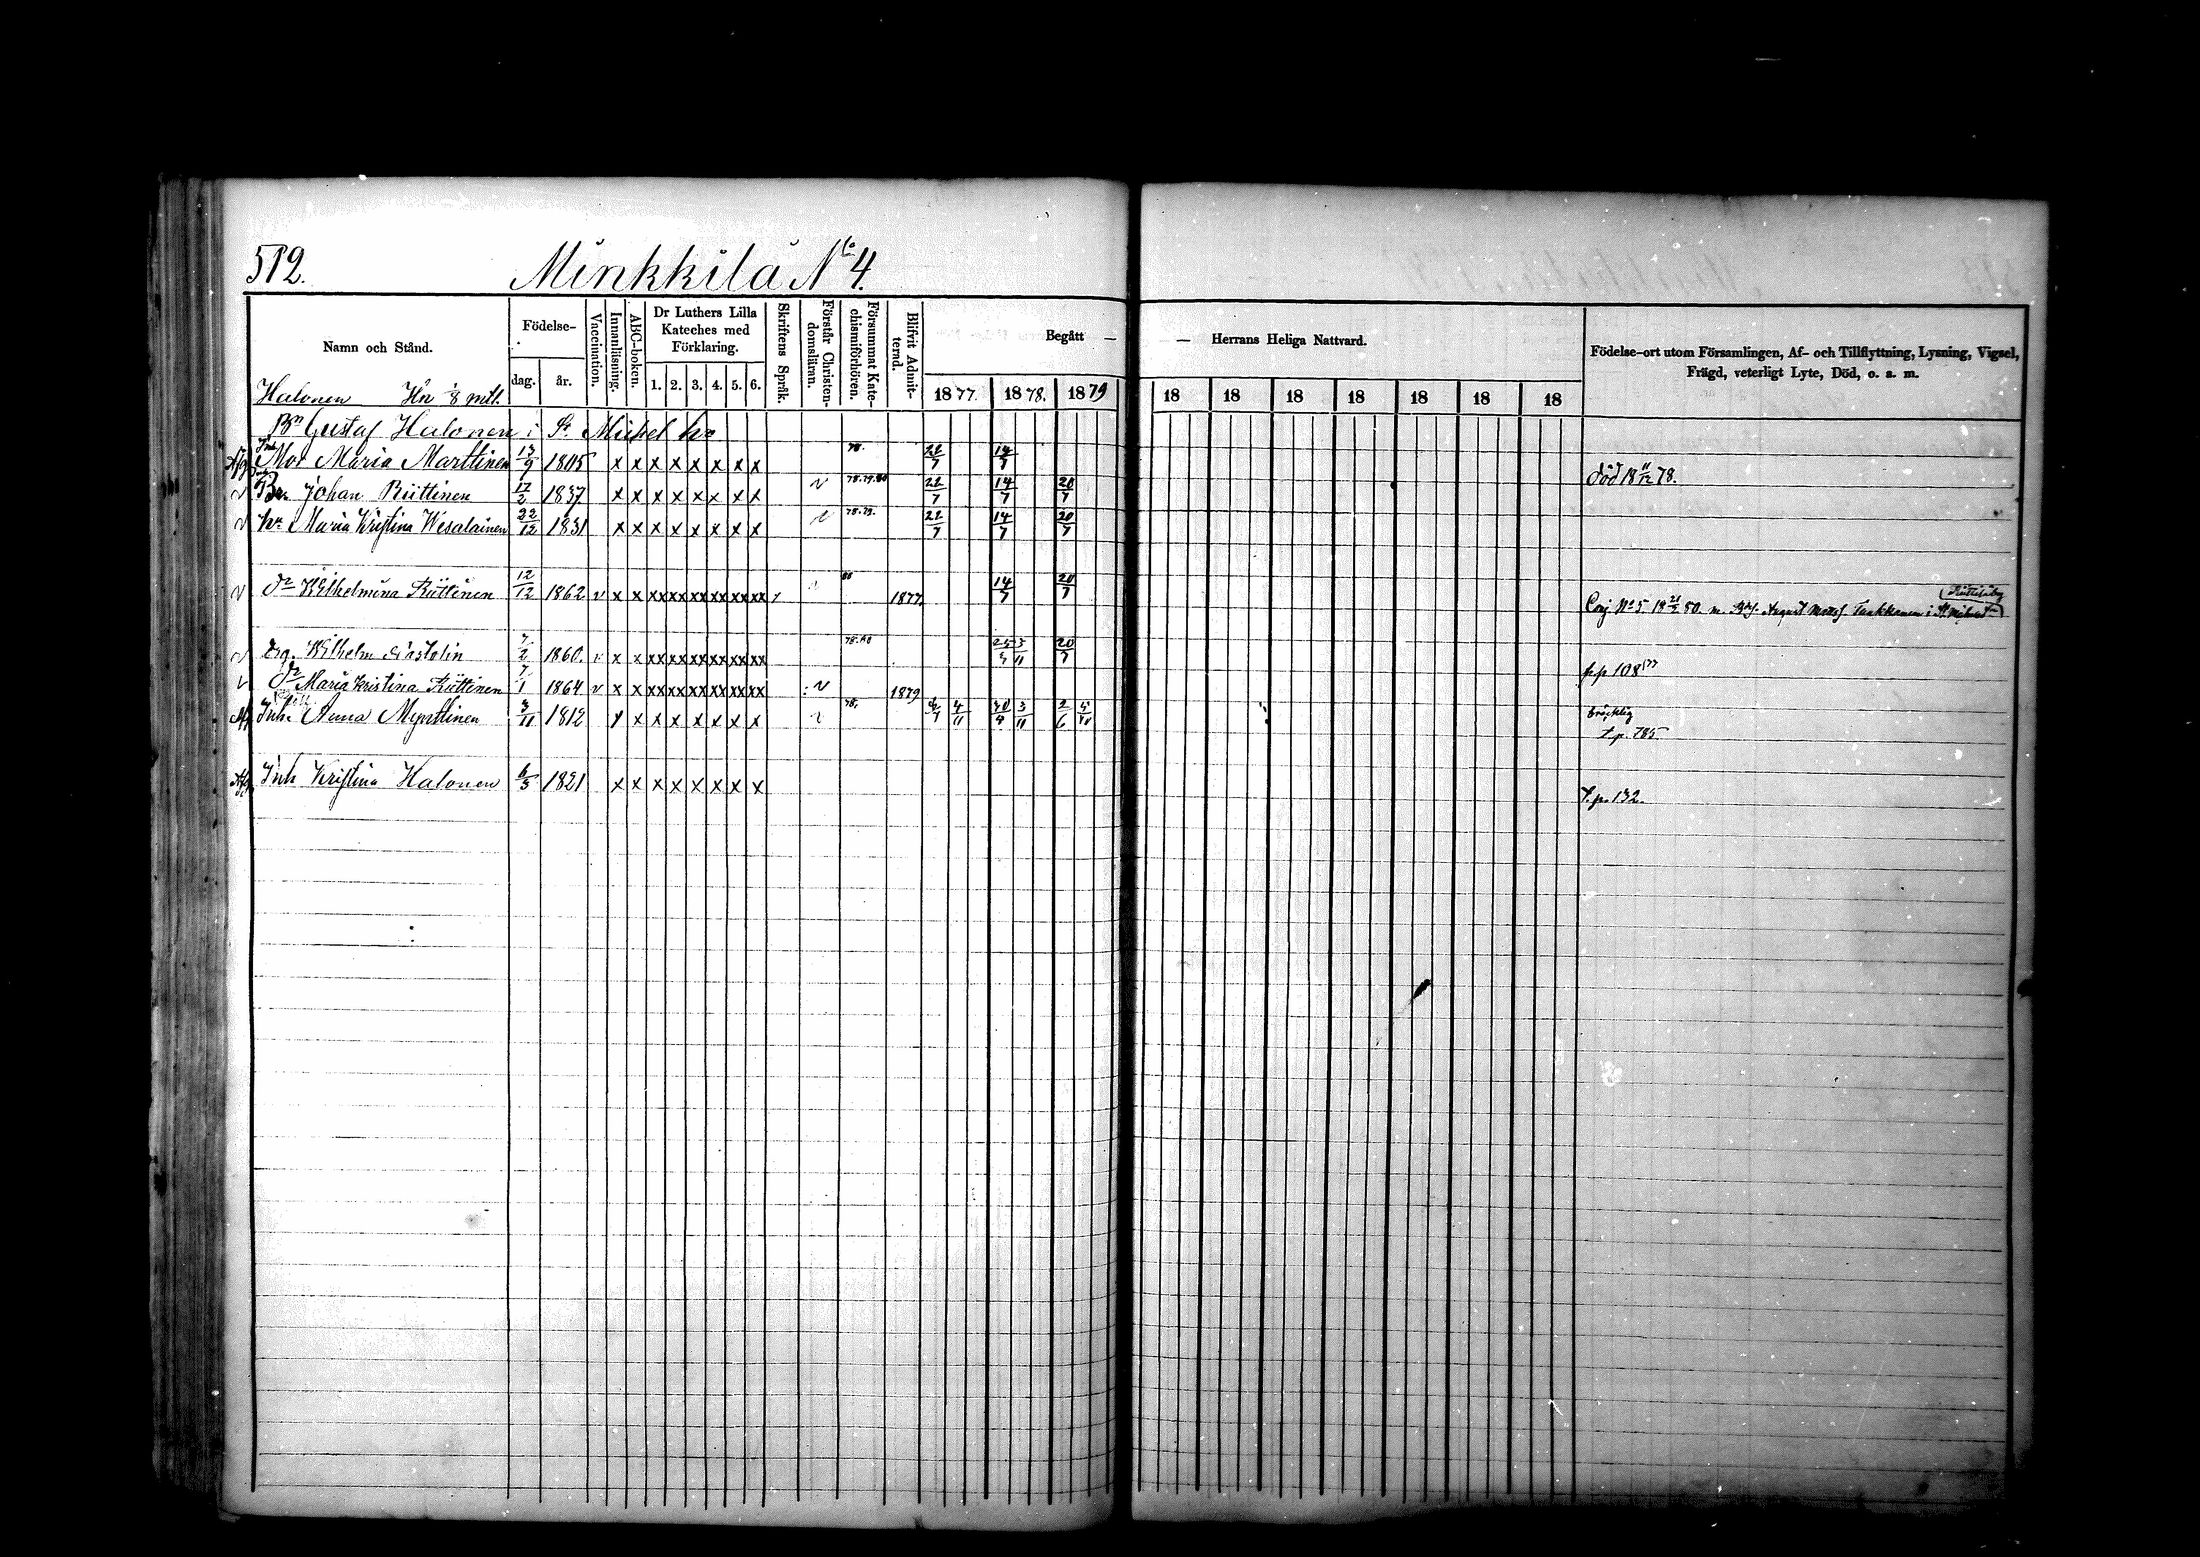 512. Minkkilä No 4.
Namn och Stånd. Födelse- dag. år. Vaccination. Innanläsning. ABC-boken. Dr Luthers Lilla Kateches med Förklaring. 1. 2. 3. 4. 5. 6. Skriftens Språk. Förstår Christendomsläran. Försummat Katechismiförhören. Blifvit Admitterad. Begått — — Herrans Heliga Nattvard. 1877. 1878. 1879 18 18 18 18 18 18 18 Födelse-ort utom Församlingen, Af- och Tillflyttning, Lysning, Vigsel, Frägd, veterligt Lyte, Död, o. a. m.
Halonen Hn 1/8 mtl.
Bn Gustaf Halonen i St. Michel
Mor Maria Marttinen 13/9 1805 x x x x x x x x 78. 22/7 14/7 död 18 11/12 78.
Johan Riittinen 17/2 1837 x x x x x x x x v 78.79.80 22/7 14/7 20/7
v hu Maria Kristina Wesalainen 22/12 1831 x x x x x x x x 78.79. 22/7 14/7 20/7
v dr Wilhelmina Riittinen 12/12 1862 v x x xx xx xx xx xx xx 80 1877. 14/7 20/7 No 5 18 80 m. August Taskkanen i St. Michel
v Wilhelm 7/2 1860. v x x xx xx xx xx xx xx 78.80 3/11 20/7 pp 108
v dr Maria Kristina Riittinen 7/1 1864 v x x xx xx xx xx xx xx v 1879
Inh. Anna Myrttinen 3/11 1812 x x x x x x x 78, 4/11 3/11 2/6 bräcklig
t.p. 785
Inh Kristina Halonen 6/3 1821 x x x x x x x x T.p. 132.